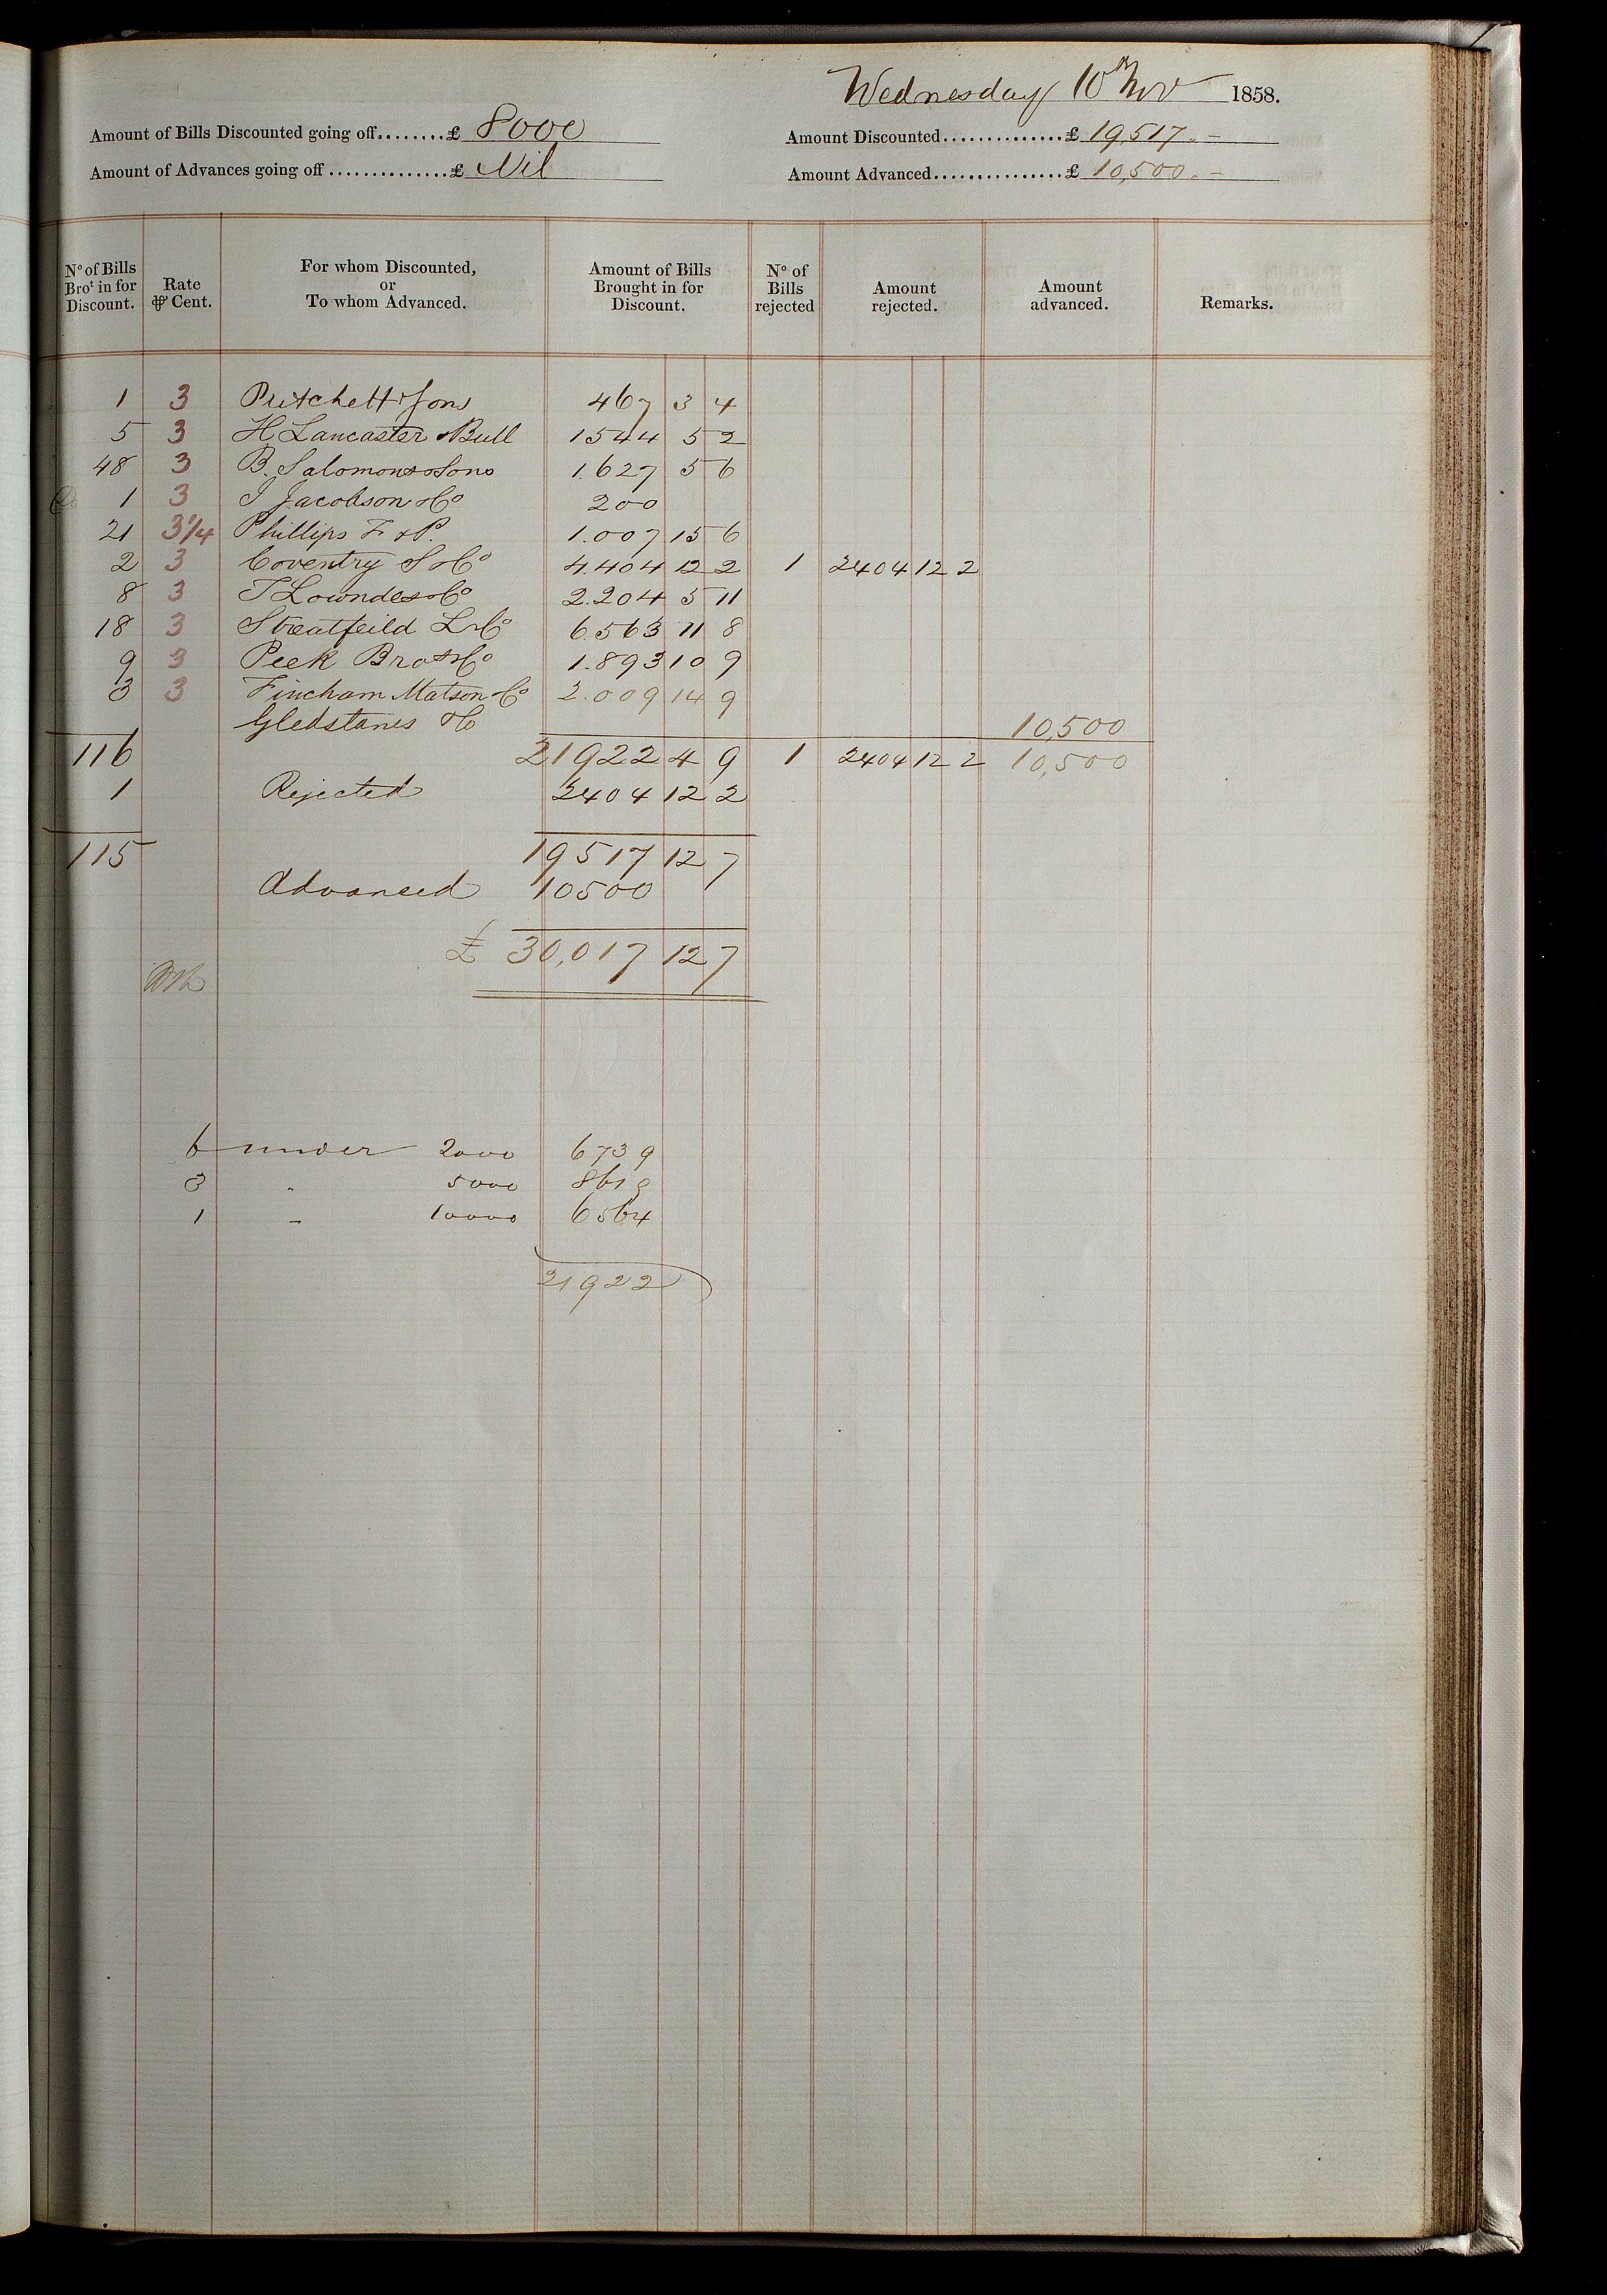 Wednesday 10th Nov 1858.
Amount of Bills Discounted going off........£ 8000
Amount Discounted...............£ 19,517.-
Amount of Advances going off...............£ Nil
Amount Advanced................£ 10,500.-
No of Bills Brot in for Discount. | Rate ⅌ Cent. | For whom Discounted, or To whom Advanced. | Amount of Bills Brought in for Discount. | No of Bills rejected | Amount rejected. | Amount advanced. | Remarks.
1 3 Pritchett & Sons 467 3 4
5 3 H Lancaster & Bull 1544 5 2
48 3 B. Salomons & Sons 1.627 5 6
1 3 J Jacobson & Co 200
21 3 1/4 Phillips F & P. 1.007 15 6
2 3 Coventry S & Co 4.404 12 2 1 2404 12 2
8 3 T Lowndes & Co 2.204 5 11
18 3 Streatfeild L & Co 6.563 11 8
9 3 Peek Bros & Co 1.893 10 9
3 3 Fincham Matson & Co 2.009 14 9
Gledstanes & Co 10,500
116 21922 4 9 1 2404 12 2 10,500
1 Rejected 2404 12 2
115 19517 12 7
Advanced 10500
£ 30,017 12 7
6 under 2000 6739
3 " 5000 8619
1 " 10000 6564
21922